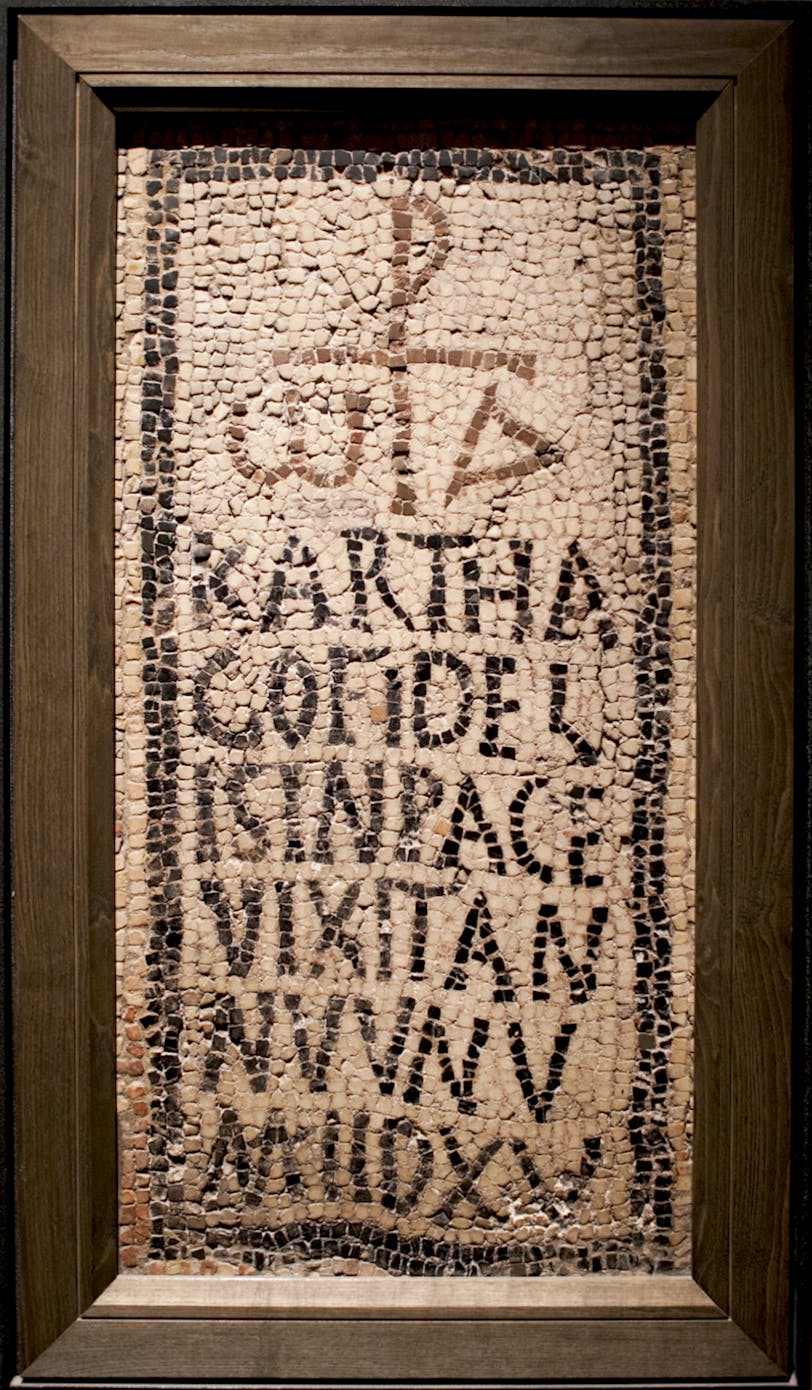 ⳨
ω Α
KARTHA
GOFIDEL
ISINPACE
VIXITAN
NVVNV
MIIDXV